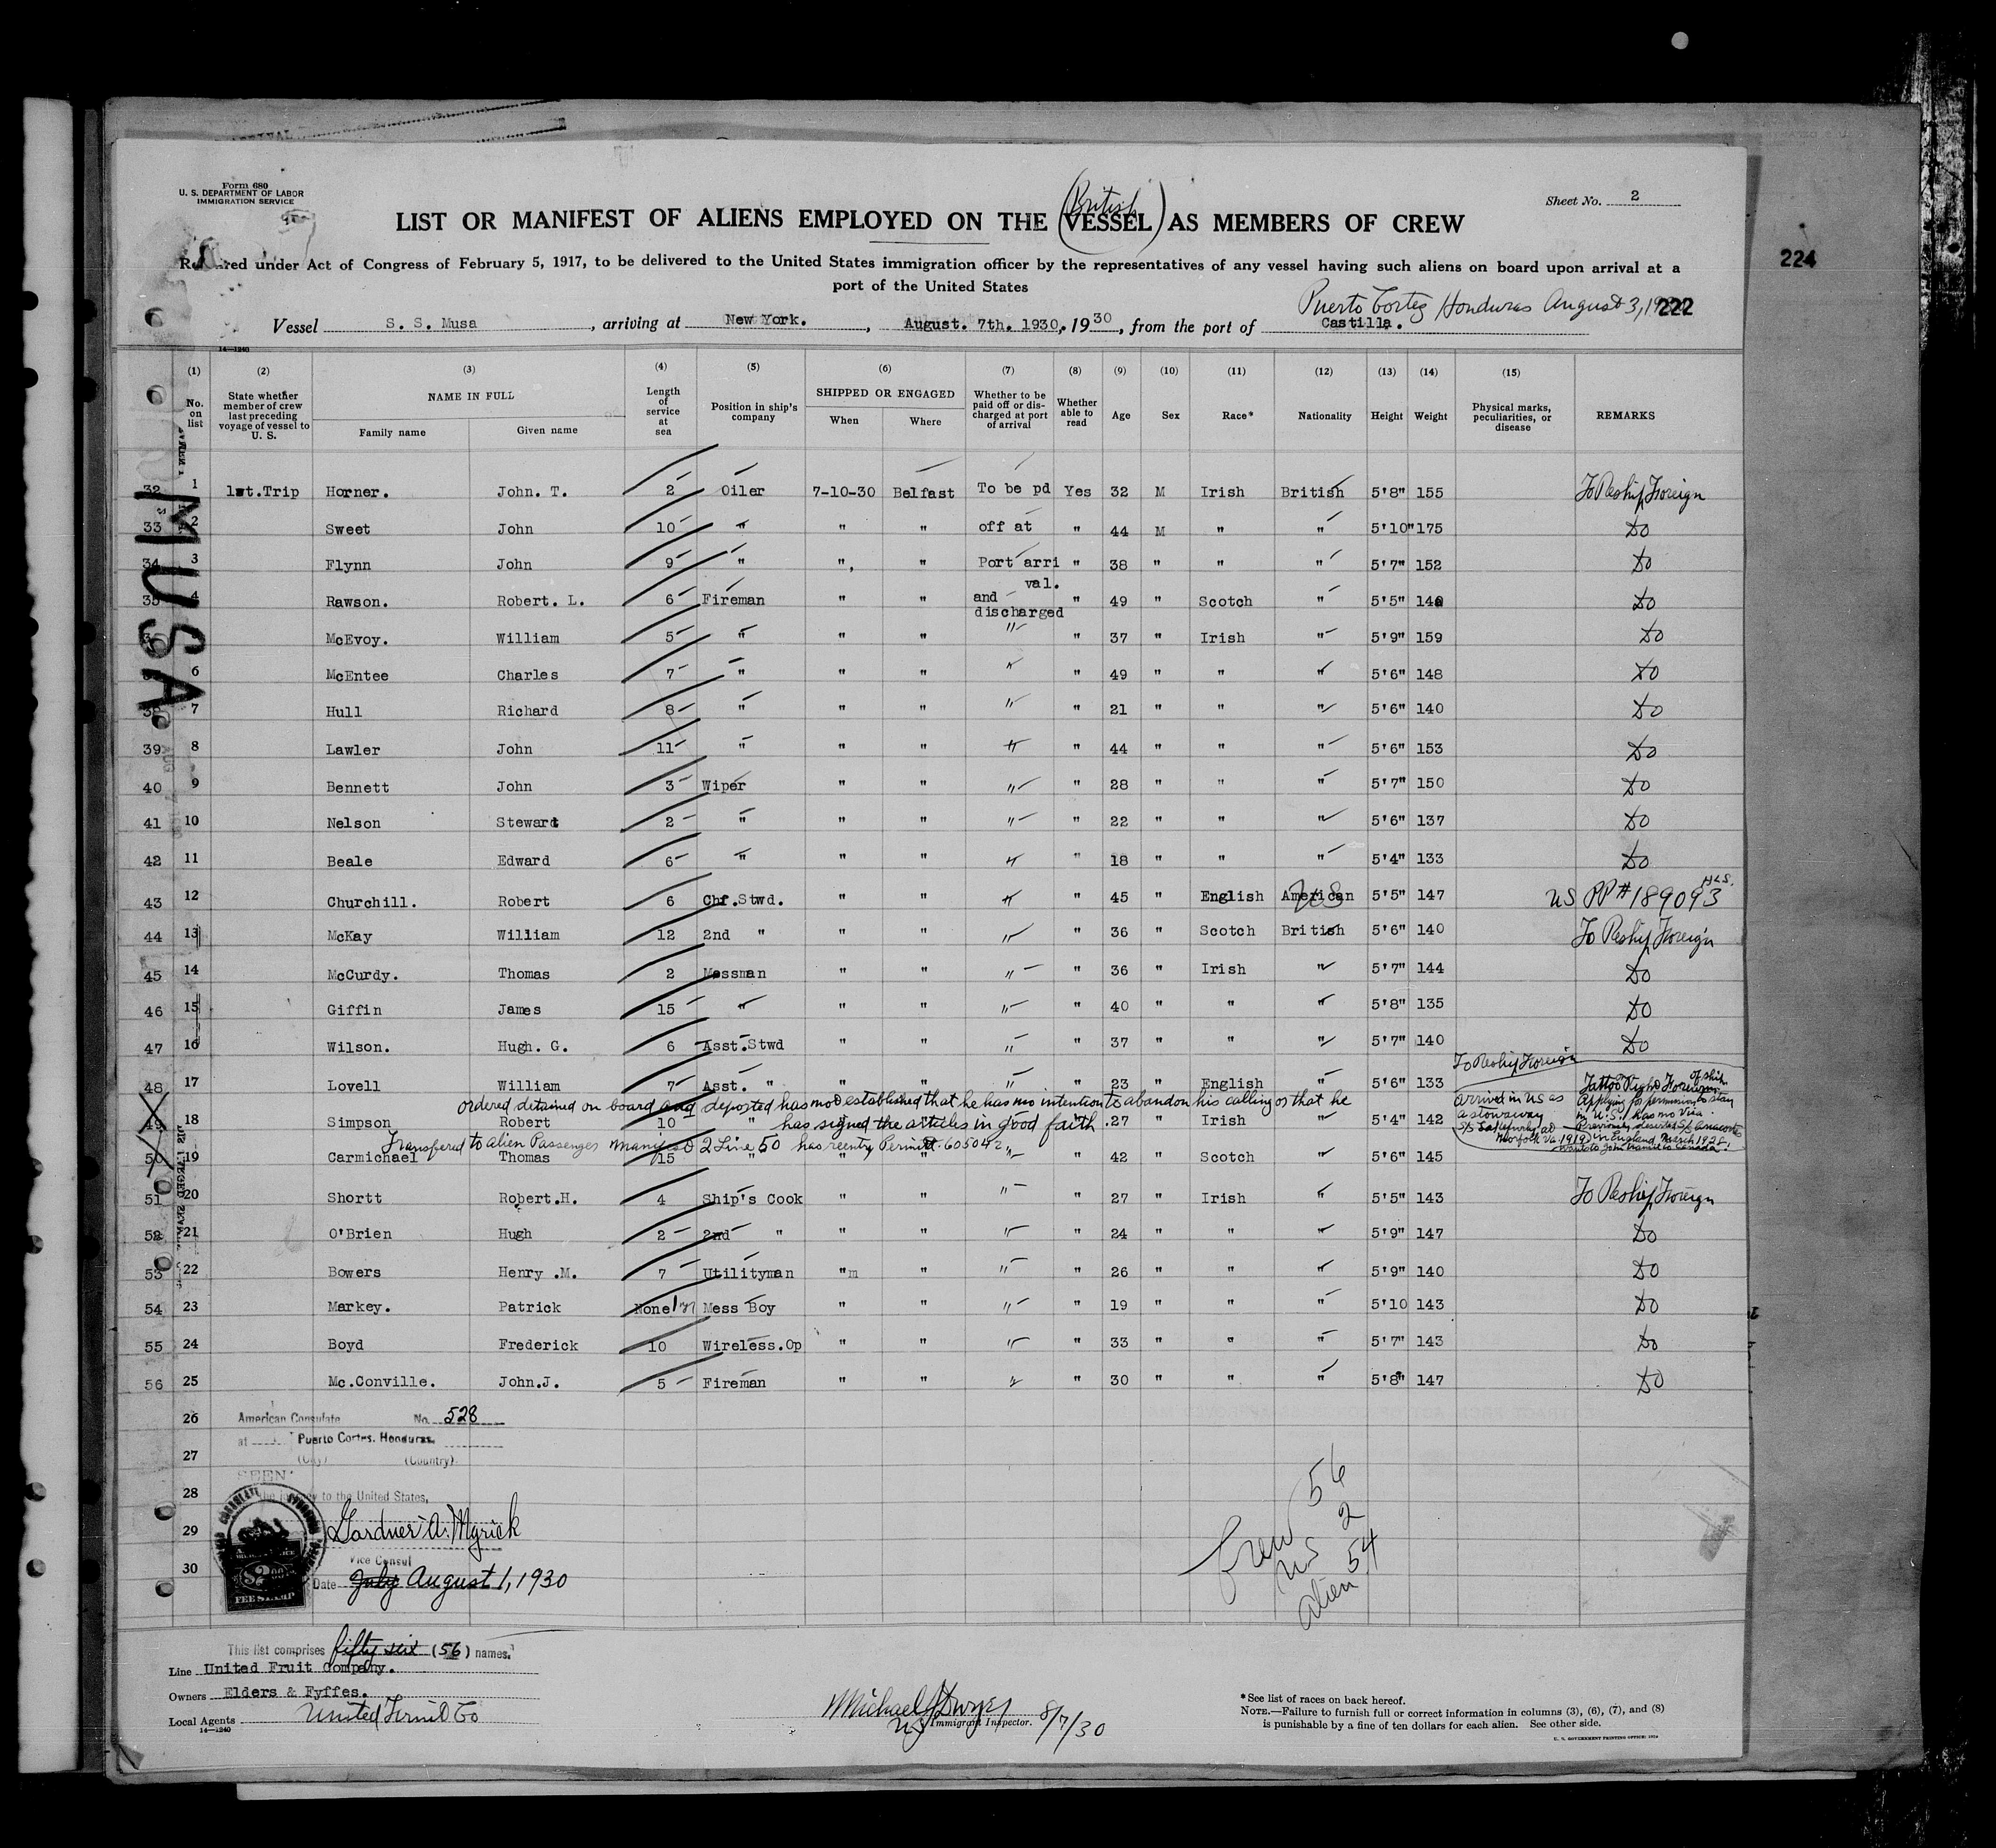 Form 680
U. S. DEPARTMENT OF LABOR
IMMIGRATION SERVICE
Sheet No. 2
(British)
LIST OR MANIFEST OF ALIENS EMPLOYED ON THE VESSEL AS MEMBERS OF CREW
224
under Act of Congress of February 5, 1917, to be delivered to the United States immigration officer by the representatives of any vessel having such aliens on board upon arrival at a
port of the United States
Puerto Cortez Honduras August 3, 222
Vessel S. S. Musa, arriving at New York., August. 7th. 1930, 1930, from the port of Castilla.
14—1240
(1) (2) (3) (4) (5) (6) (7) (8) (9) (10) (11) (12) (13) (14) (15)
No. on list State whether member of crew last preceding voyage of vessel to U. S. NAME IN FULL Family name Given name Length of service at sea Position in ship's company SHIPPED OR ENGAGED When Where Whether to be paid off or discharged at port of arrival Whether able to read Age Sex Race* Nationality Height Weight Physical marks, peculiarities, or disease REMARKS
MUSA
32 1 1st.Trip Horner. John. T. 2 Oiler 7-10-30 Belfast To be pd Yes 32 M Irish British 5'8" 155 To Reship Foreign
33 2 Sweet John 10 " " " off at " 44 M " " 5'10" 175 Do
34 3 Flynn John 9 " ", " Port arri " 38 " " " 5'7" 152 Do
val.
35 4 Rawson. Robert. L. 6 Fireman " " and discharged " 49 " Scotch " 5'5" 140 Do
5 McEvoy. William 5 " " " " " 37 " Irish " 5'9" 159 Do
6 McEntee Charles 7 " " " " " 49 " " " 5'6" 148 Do
38 7 Hull Richard 8 " " " " " 21 " " " 5'6" 140 Do
39 8 Lawler John 11 " " " " " 44 " " " 5'6" 153 Do
40 9 Bennett John 3 Wiper " " " " 28 " " " 5'7" 150 Do
41 10 Nelson Stewart 2 " " " " " 22 " " " 5'6" 137 Do
42 11 Beale Edward 6 " " " " " 18 " " " 5'4" 133 Do
43 12 Churchill. Robert 6 Chf.Stwd. " " " " 45 " English American US 5'5" 147 US PP # 189093 HLS.
44 13 McKay William 12 2nd " " " " " 36 " Scotch British 5'6" 140 To Reship Foreign
45 14 McCurdy. Thomas 2 Messman " " " " 36 " Irish " 5'7" 144 Do
46 15 Giffin James 15 " " " " " 40 " " " 5'8" 135 Do
47 16 Wilson. Hugh. G. 6 Asst.Stwd " " " " 37 " " " 5'7" 140 Do
48 17 Lovell William 7 Asst. " " " " " 23 " English " 5'6" 133 To Reship Foreign
ordered detained on board and deported has not established that he has no intention to abandon his calling or that he
has signed the articles in good faith.
49 18 Simpson Robert 10 " 27 " Irish " 5'4" 142
arrived in US as a stowaway
Tattoo Right Forearm
Applying for permission to stay in U.S. has no visa.
Norfolk Va 1919 in England March 1928.
Transfered to Alien Passenger manifest 2 Line 50 has reentry Permit 605042
50 19 Carmichael Thomas 15 " " " " " 42 " Scotch " 5'6" 145
51 20 Shortt Robert.H. 4 Ship's Cook " " " " 27 " Irish " 5'5" 143 To Reship Foreign
52 21 O'Brien Hugh 2 2nd " " " " " 24 " " " 5'9" 147 Do
53 22 Bowers Henry .M. 7 Utilityman "m " " " 26 " " " 5'9" 140 Do
54 23 Markey. Patrick None 1 yr Mess Boy " " " " 19 " " " 5'10 143 Do
55 24 Boyd Frederick 10 Wireless.Op " " " " 33 " " 5'7" 143 Do
56 25 Mc.Conville. John.J. 5 Fireman " " " " 30 " " " 5'8" 147 Do
26 American Consulate No. 528
at Puerto Cortes. Honduras.
27 (City) (Country)
SEEN
28 to the United States,
29 Gardner A. Myrick
Vice Consul
30 Date July August 1, 1930
$2.00
FEE STAMP
Crew 56
US 2
Alien 54
This list comprises fifty six (56) names.
Line United Fruit Company.
Owners Elders & Fyffes.
Local Agents United Fruit Co
14—1240
Michael J Dwyer
Immigrant Inspector. 8/7/30
*See list of races on back hereof.
NOTE.—Failure to furnish full or correct information in columns (3), (6), (7), and (8)
is punishable by a fine of ten dollars for each alien. See other side.
U. S. GOVERNMENT PRINTING OFFICE: